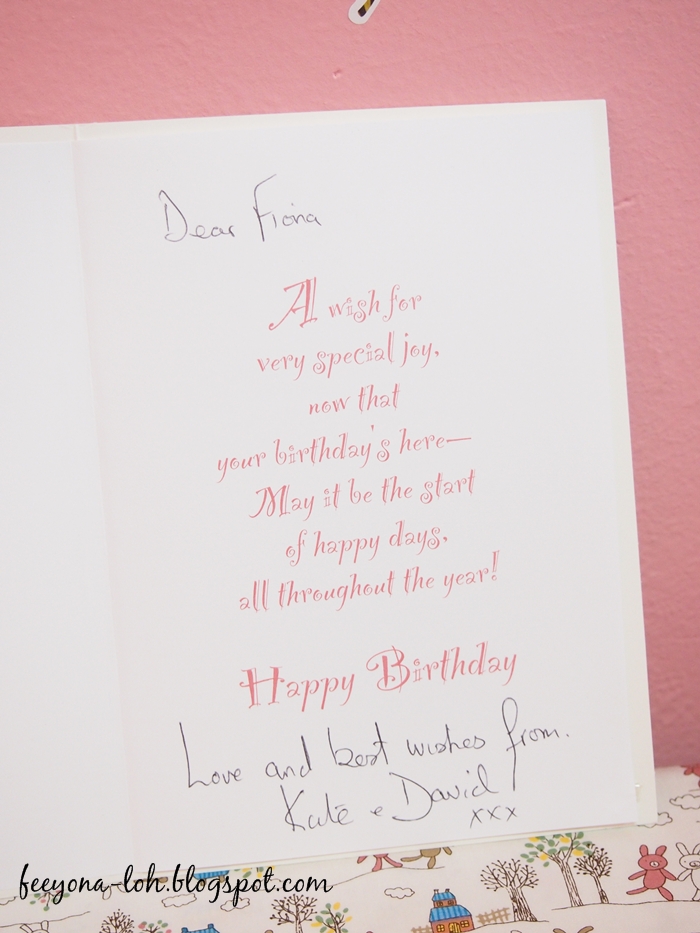 Dear Fiona
A wish for
very special joy,
now that
your birthday's here—
May it be the start
of happy days,
all throughout the year!
Happy Birthday
Love and best wishes from.
Kate & David
xxx
feeyona-loh.blogspot.com